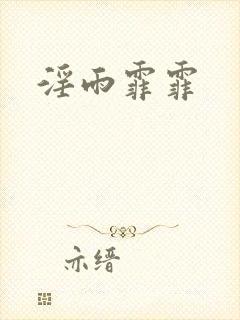 淫雨霏霏
亦缙